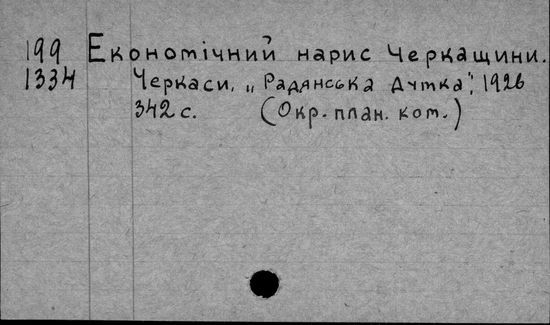 199 Економічний нарис Черкащини.
1334 Черкаси, „Радянська Думка", 1926
342 с. (Окр. план. ком.)